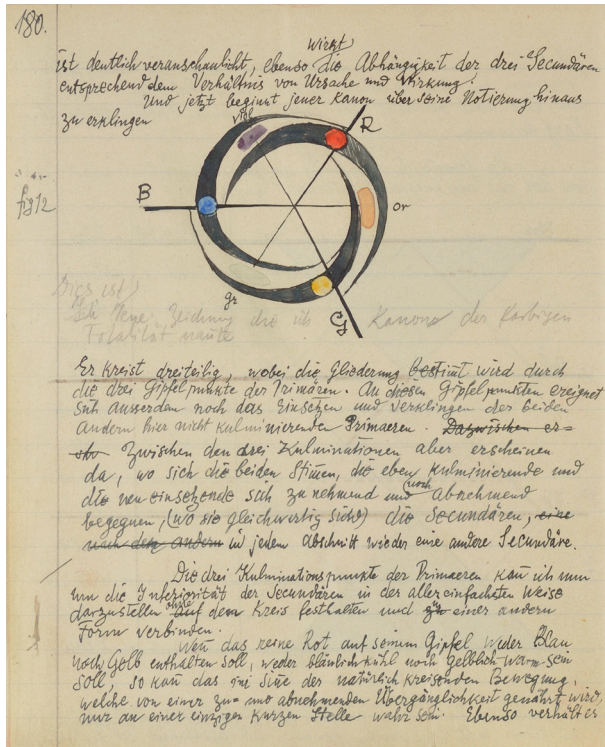 180.
wirkt
ist deutlich veranschaulicht, ebenso die Abhängigkeit der drei Secundären
entsprechend dem Verhältnis von Ursache und Wirkung.
Und jetzt beginnt jener Kanon über seine Notierung hinaus
zu erklingen
viol
R
B
fig 12
or
gr
G
Dies ist
jene Zeichnung die ich Kanons der farbigen
Totalität nannte
Er kreist dreiteilig, wobei die Gliederung bestimt wird durch
die drei Gipfelpunkte der Primären. An diesen Gipfelpunkten ereignet
sich ausserdem noch das Einsetzen und Verklingen der beiden
andern hier nicht kulminierenden Primaeren. Dazwischen er=
Zwischen den drei Kulminationen aber erscheinen
da, wo sich die beiden Stimen, die eben kulminierende und
die neu einsetzende sich zunehmend und noch abnehmend
begegnen, (wo sie gleichwertig sind) die Secundären, eine
nach der andern in jedem Abschnitt wieder eine andere Secundäre.
Die drei Kulminationspunkte der Primaeren kan ich nun
um die Inferiorität der Secundären in der allereinfachsten Weise
darzustellen ohne auf dem Kreis festhalten und zu einer andern
Form verbinden.
Wen das reine Rot auf seinem Gipfel weder Blau
noch Gelb enthalten soll, weder bläulich kühl noch gelblich warm sein
soll, so kan das im Sine der natürlich kreisenden Bewegung,
welche von einer zu= und abnehmenden Übergänglichkeit genährt wird,
nur an einer einzigen kurzen Stelle wahr sein. Ebenso verhält es